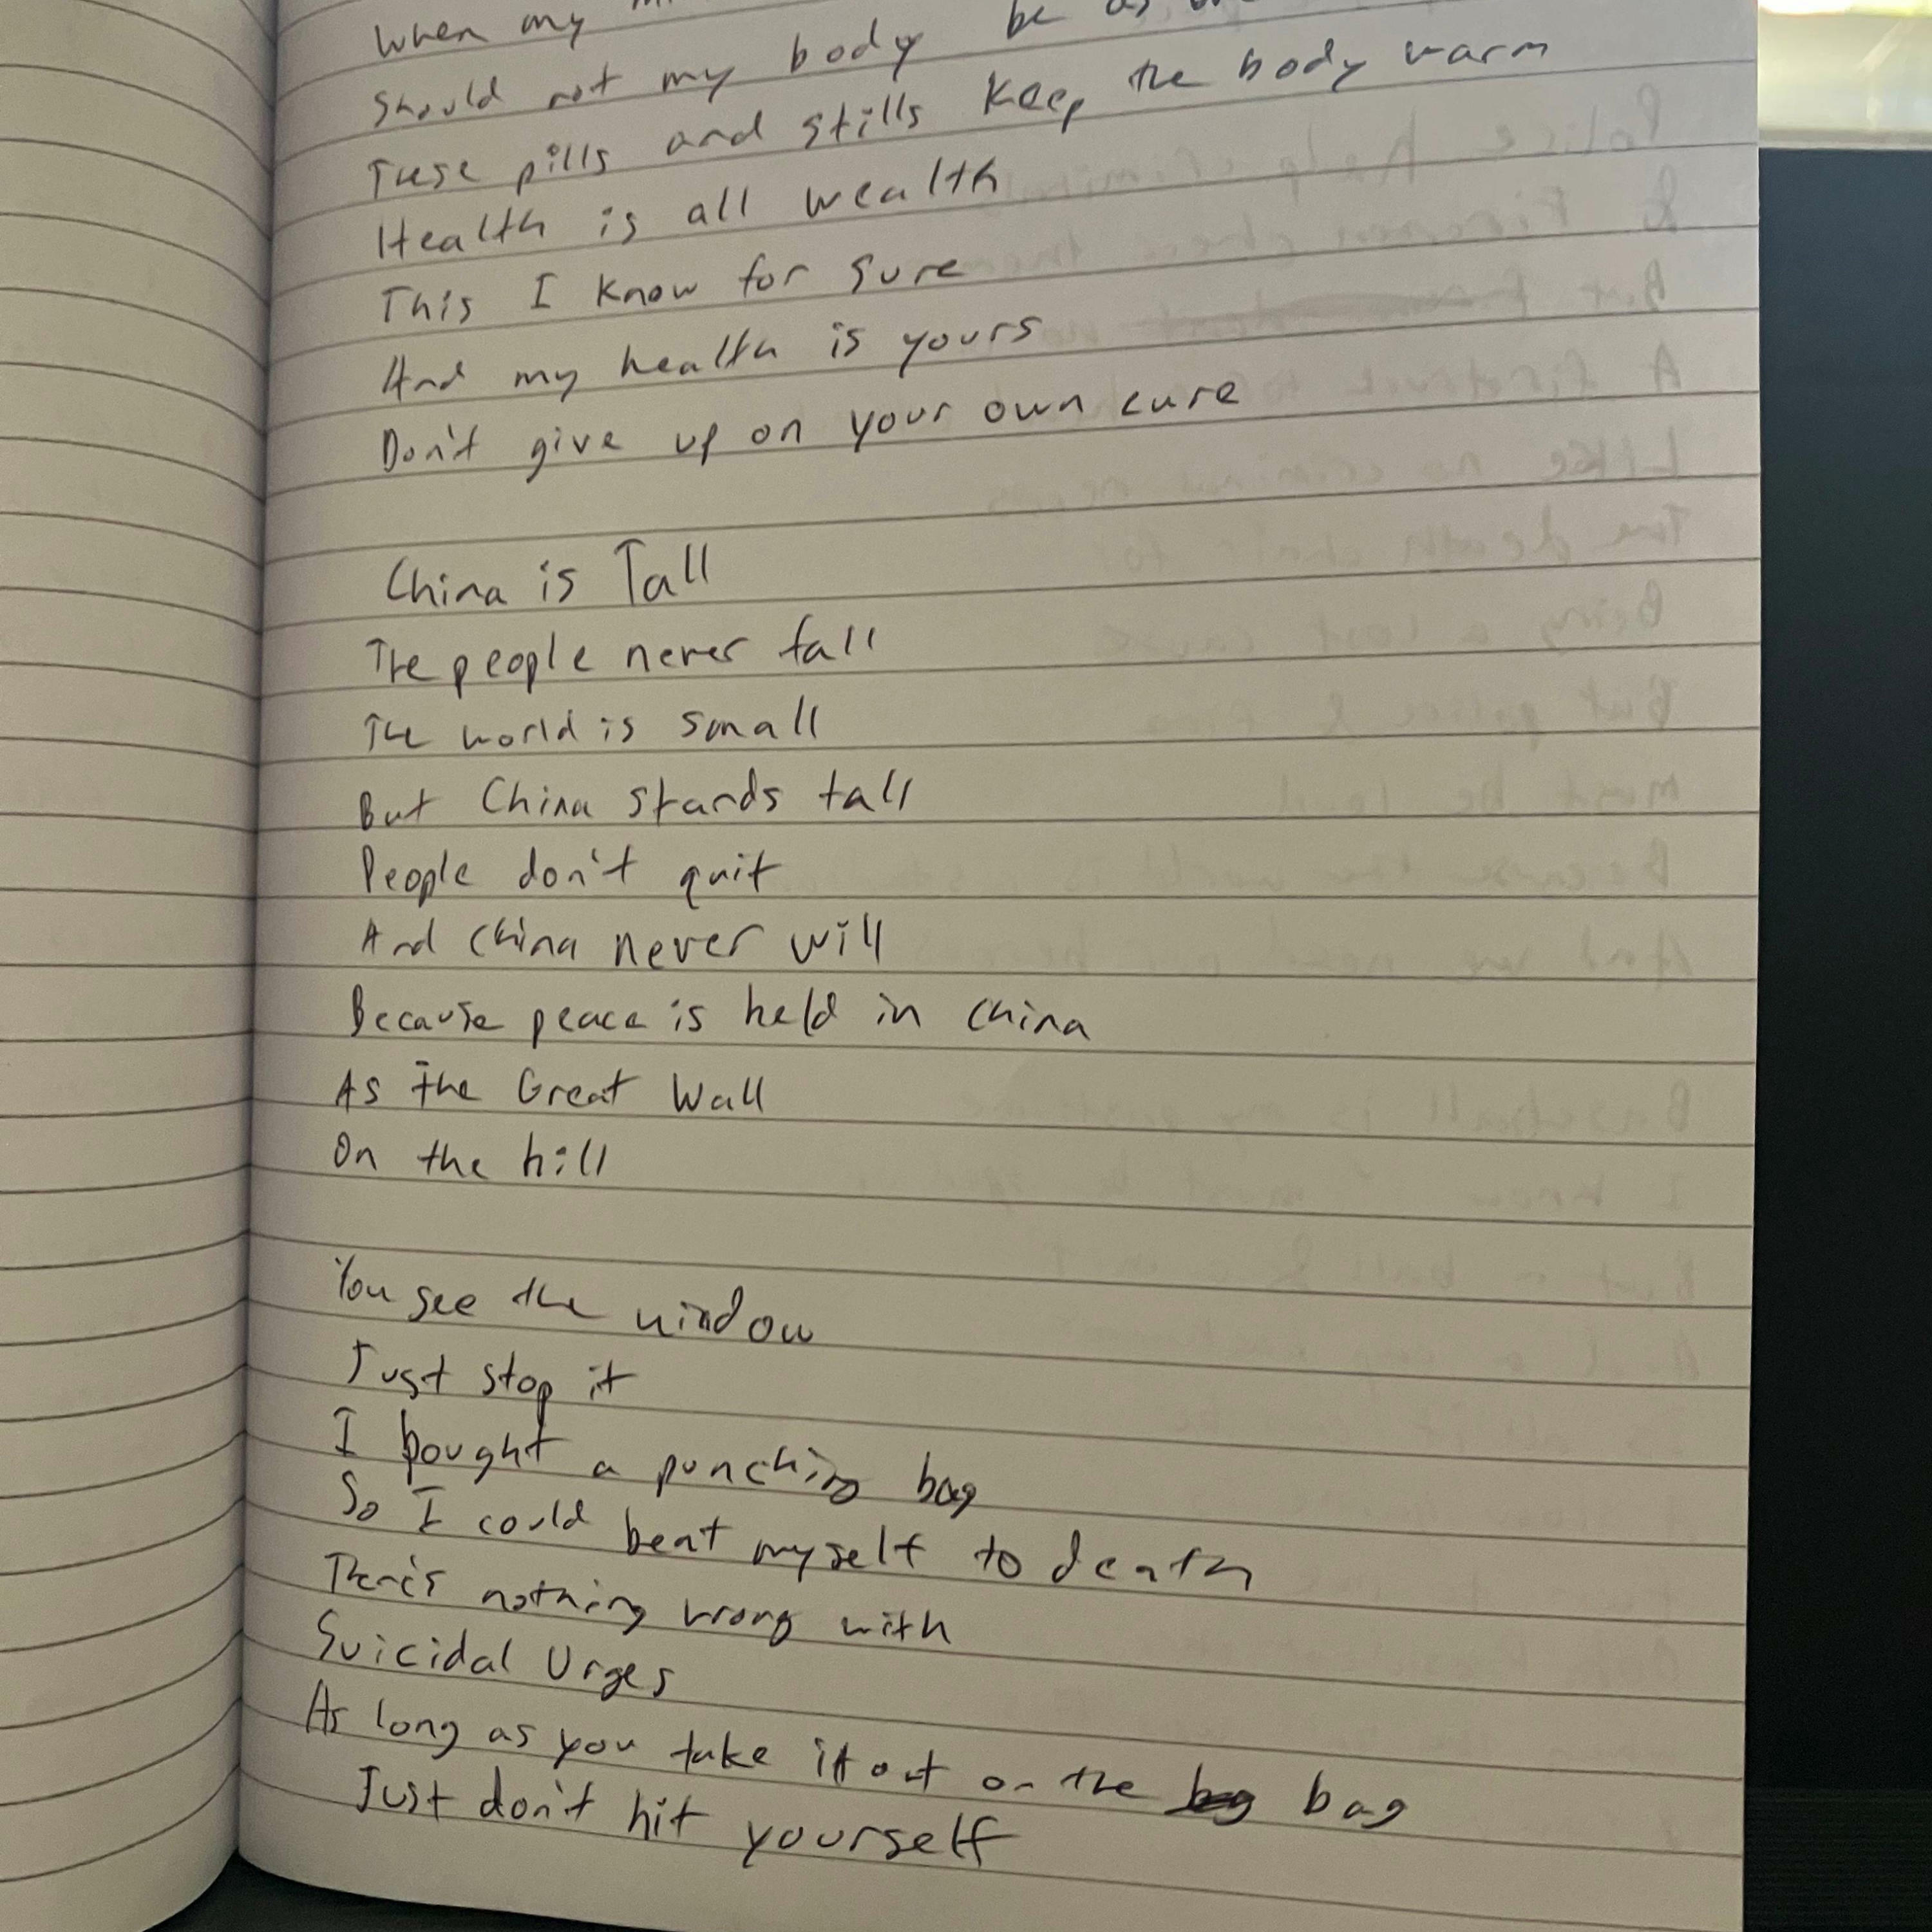 When my
Should not my body be as
These pills and stills keep the body warm
Health is all wealth
This I know for sure
And my health is yours
Don't give up on your own cure
China is Tall
The people never fall
The world is small
But China stands tall
People don't quit
And China never will
Because peace is held in China
As the Great Wall
On the hill
You see the window
Just stop it
I bought a punching bag
So I could beat myself to death
There's nothing wrong with
Suicidal Urges
As long as you take it out on the bag
Just don't hit yourself